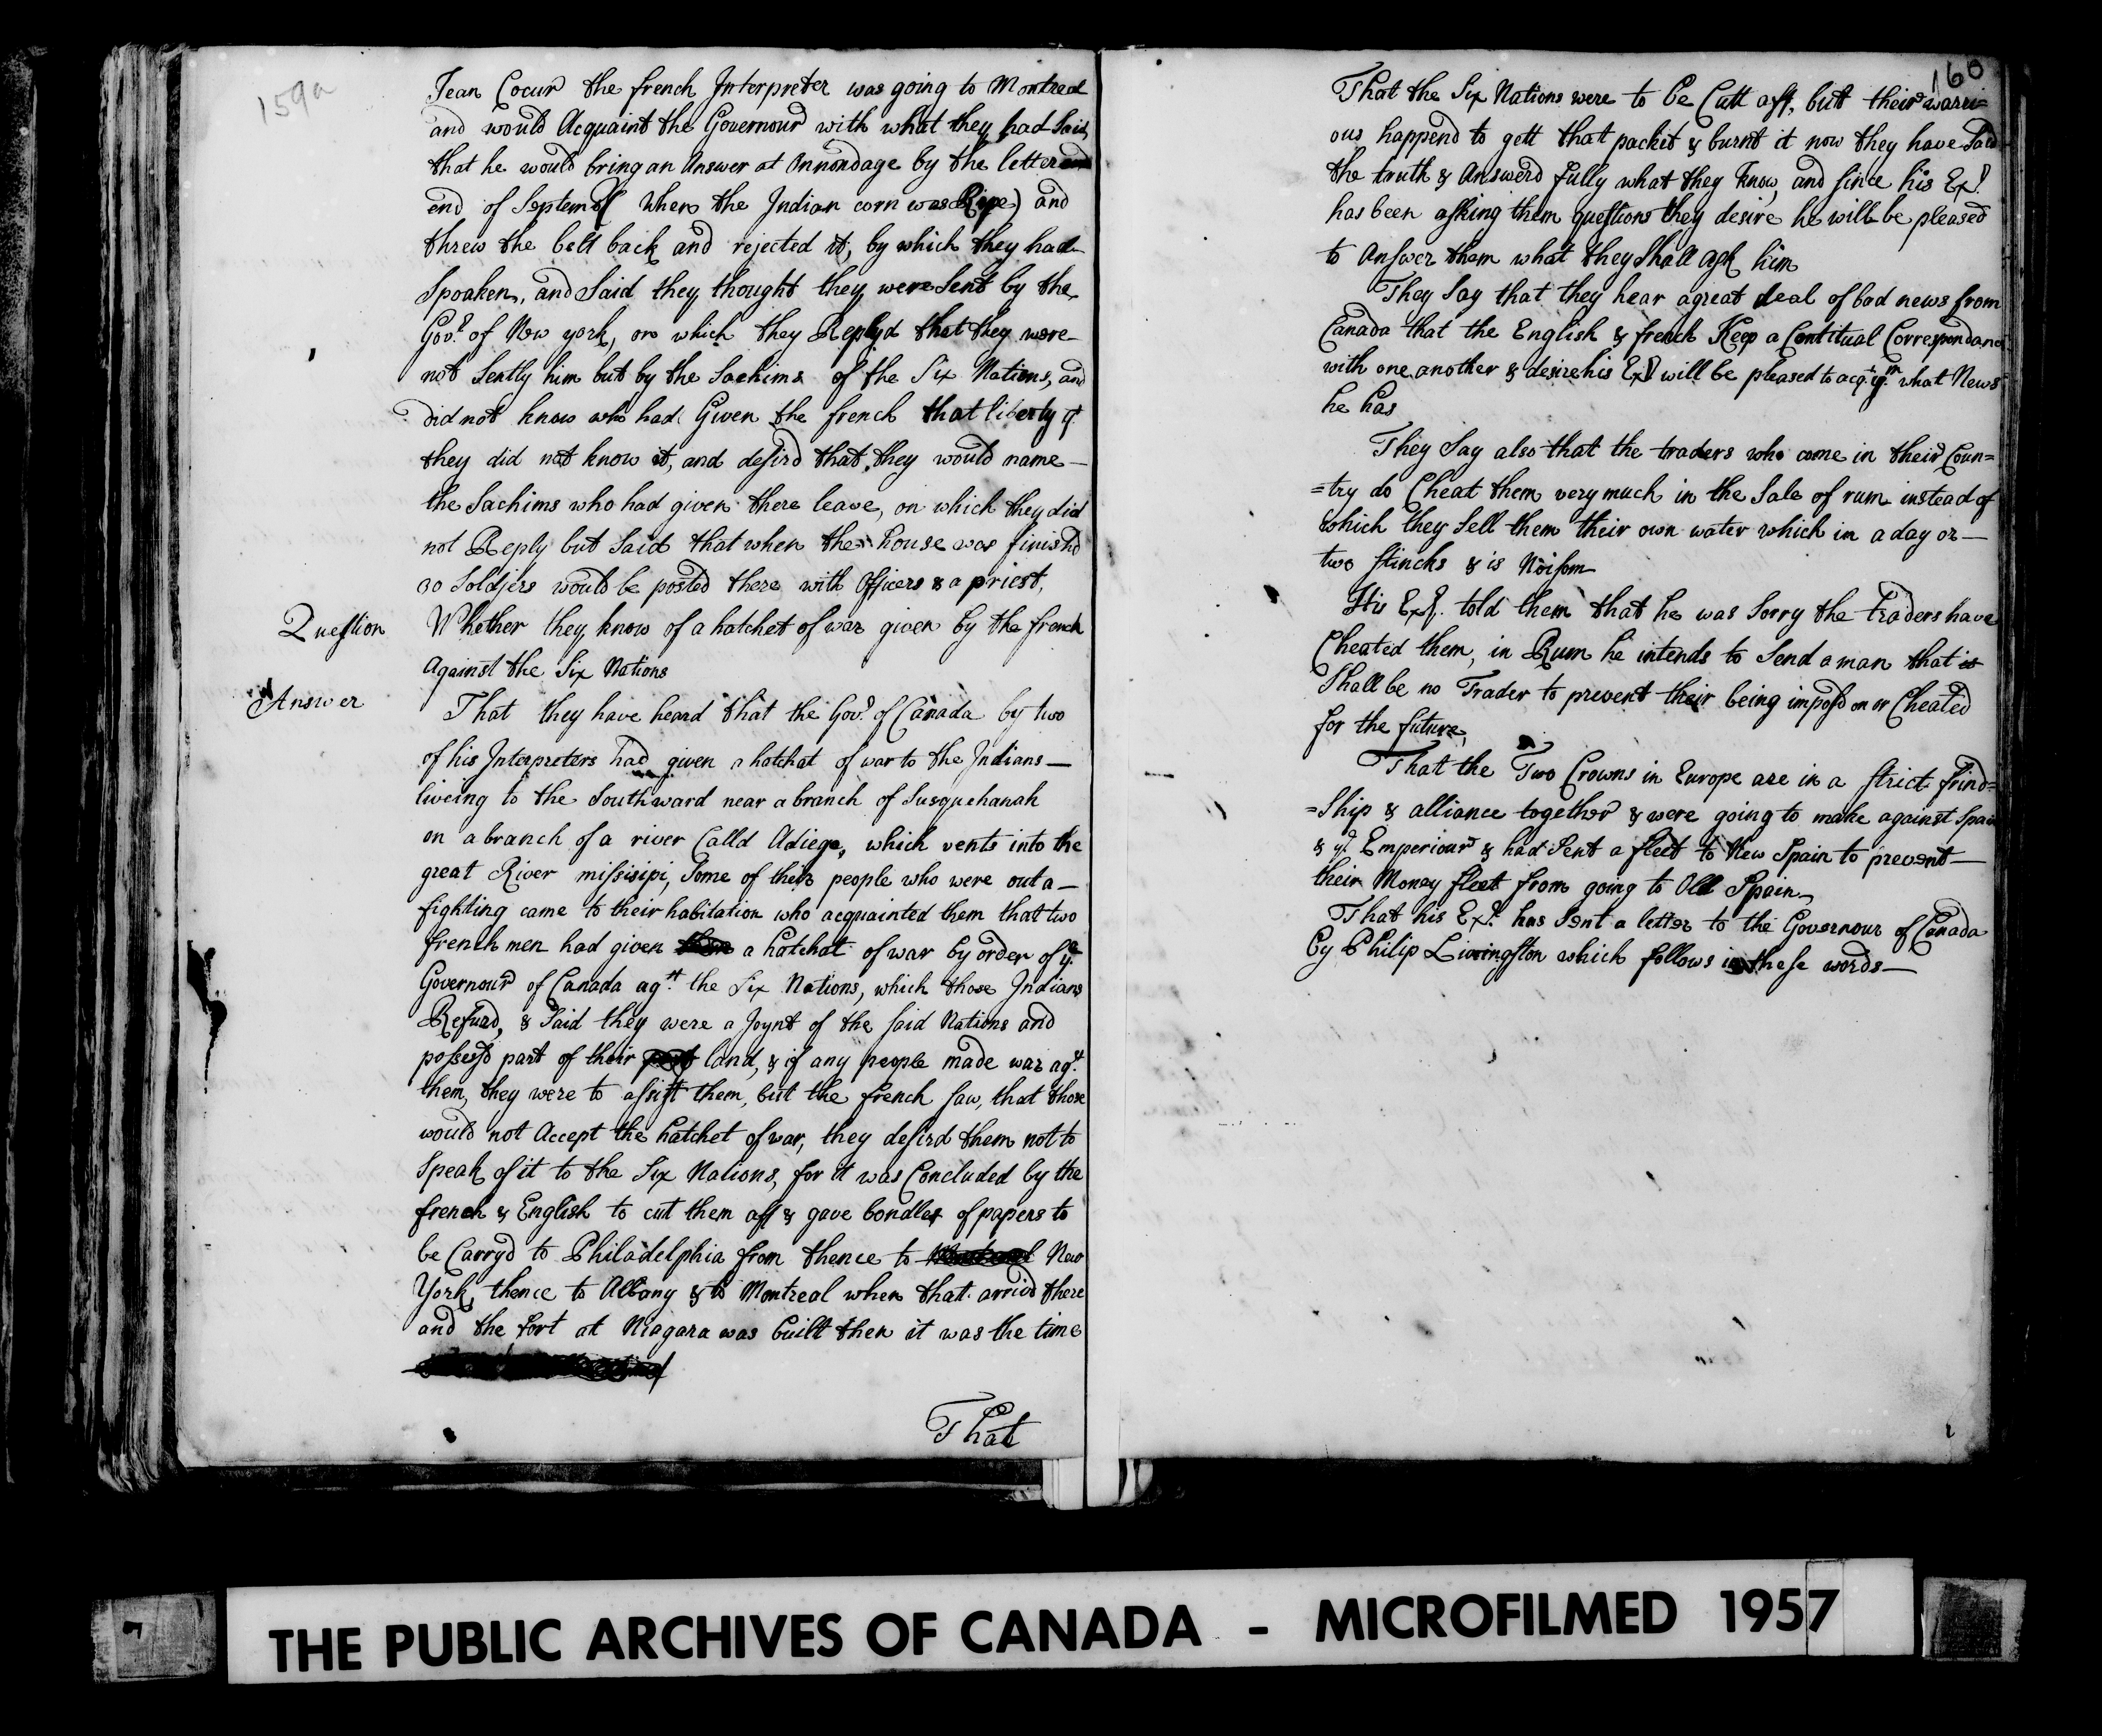 159a
Jean Coeur the french Interpreter was going to Montreal
and would Acquaint the Governour with what they had Said,
that he would bring an Answer at Onnondage by the letter
end of Septembr (when the Indian corn was Ripe) and
threw the belt back and rejected it, by which they had
Spoaken, and Said they thought they were Sent by the
Govr. of New york, on which they Replyd that they were
not Sent by him but by the Sachims of the Six Nations, and
did not know who had Given the french that liberty yt
they did not know it, and desird that they would name
the Sachims who had given there leave, on which they did
not Reply but Said that when the house was finishd
30 Soldjers would be posted there with Officers & a priest,
Question Whether they know of a hatchet of war given by the french
Against the Six Nations
Answer That they have heard that the Govr. of Canada by two
of his Interpreters had given a hatchat of war to the Indians —
liveing to the Southward near a branch of Susquehanah
on a branch of a river Calld Adiego, which vents into the
great River missisipi, Some of their people who were out a —
fighting came to their habitation who acquainted them that two
french men had given a hatchat of war by order of ye
Governour of Canada agt. the Six Nations, which those Indians
Refusd, & Said they were a Joynt of the said Nations and
possessd part of their land, & if any people made war agt.
them, they were to assist them, but the french saw, that those
would not Accept the hatchet of war, they desird them not to
Speak of it to the Six Nations, for it was Concluded by the
french & English to cut them off & gave bondles of papers to
be Carryd to Philadelphia from thence to New
York, thence to Albany & to Montreal when that arrivd there
and the fort at Niagara was built then it was the time
That
160
That the Six Nations were to be Cutt off, but their warri=
ous happend to gett that packet & burnt it now they have Said
the truth & Answerd fully what they know, and since his Exy.
has been asking them questions they desire he will be pleased
to Answer them what they Shall ask him
They Say that they hear a great deal of bad news from
Canada that the English & french Keep a Contitual Correspondance
with one another & desire his Exy. will be pleased to acqt. ym. what News
he has
They Say also that the traders who come in their Coun=
=try do Cheat them very much in the Sale of rum instead of
which they Sell them their own water which in a day or —
two stincks & is Noisom
His Exy. told them that he was Sorry the traders have
Cheated them, in Rum he intends to Send a man that is
Shall be no Trader to prevent their being imposd on or Cheated
for the future,
That the Two Crowns in Europe are in a strict frind=
=Ship & alliance together & were going to make against Spain
& ye. Emperiour & had Sent a fleet to New Spain to prevent —
their Money fleet from going to Old Spain
That his Exy. has Sent a letter to the Governour of Canada
by Philip Livingston which follows in these words —
THE PUBLIC ARCHIVES OF CANADA - MICROFILMED 1957